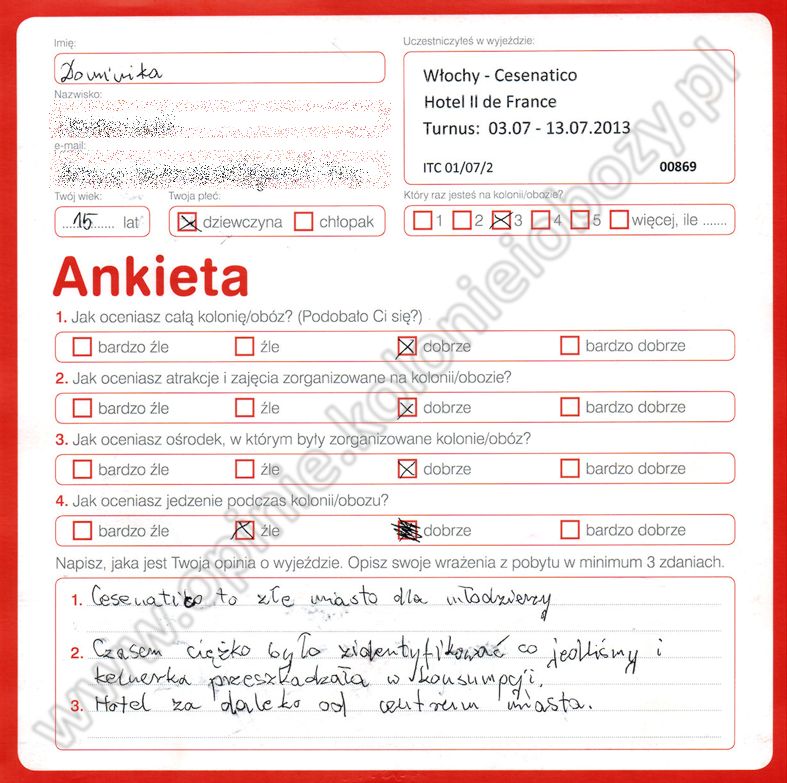 Imię:
Dominika
Nazwisko:
e-mail:
Twój wiek:
15 lat
Twoja płeć:
dziewczyna chłopak
Uczestniczyłeś w wyjeździe:
Włochy - Cesenatico
Hotel II de France
Turnus: 03.07 - 13.07.2013
ITC 01/07/2 00869
Który raz jesteś na kolonii/obozie?
1 2 3 4 5 więcej, ile .......
Ankieta
1. Jak oceniasz całą kolonię/obóz? (Podobało Ci się?)
bardzo źle źle dobrze bardzo dobrze
2. Jak oceniasz atrakcje i zajęcia zorganizowane na kolonii/obozie?
bardzo źle źle dobrze bardzo dobrze
3. Jak oceniasz ośrodek, w którym były zorganizowane kolonie/obóz?
bardzo źle źle dobrze bardzo dobrze
4. Jak oceniasz jedzenie podczas kolonii/obozu?
bardzo źle źle dobrze bardzo dobrze
Napisz, jaka jest Twoja opinia o wyjeździe. Opisz swoje wrażenia z pobytu w minimum 3 zdaniach.
1. Cesenatico to złe miasto dla młodzierzy
2. Czasem ciężko było zidentyfikować co jedliśmy i
kelnerka przeszkadzała w konsumpcji.
3. Hotel za daleko od centrum miasta.
www.opinie.kolonieiobozy.pl